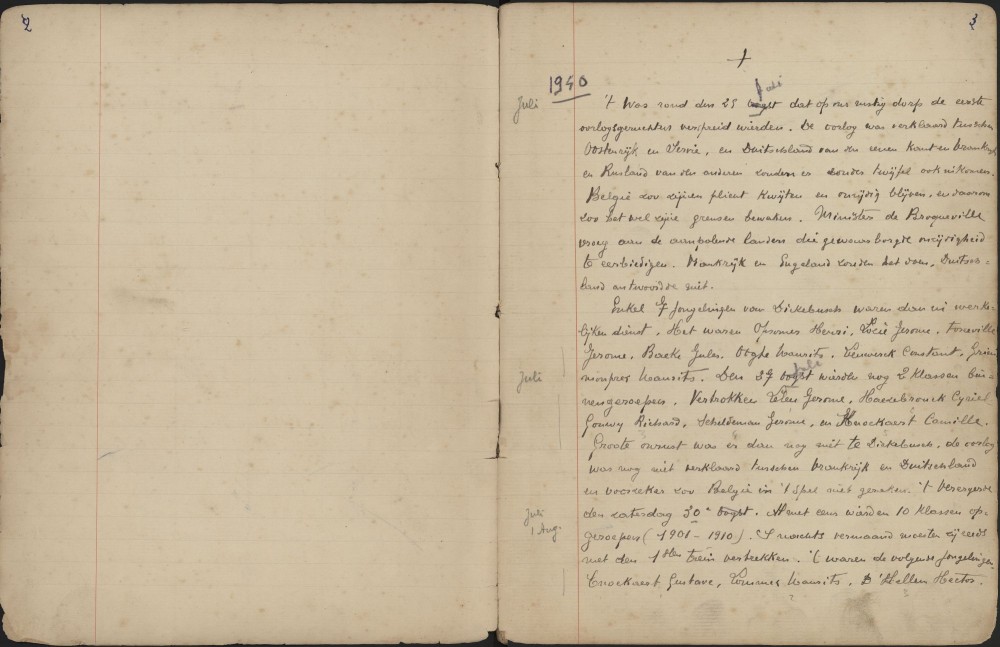 2
3
+
1940
Juli
Juli
't Was rond den 25 oogst dat op ons rustig dorp de eerste
oorlogsgeruchten verspreid wierden. De oorlog was verklaard tusschen
Oostenrijk en Servie, en Duitschland van den eenen kant en Frankrijk
en Rusland van den anderen zouden er zonder twijfel ook in komen.
België zou zijnen plicht kwijten en onzijdig blijven, en daarom
zou het wel zijne grenzen bewaken. Minister de Broqueville
vroeg aan de aanpalende landen die gewaarborgde onzijdigheid
te eerbiedigen. Frankrijk en Engeland zouden het doen, Duitsch=
land antwoordde niet.
Enkel 7 jongelingen van Dickebusch waren dan in werke-
lijken dienst. Het waren Opsomer Henri, Jerome,
Jerome, Baeke Jules, Maurits, Constant,
Maurits. Den 29 oogst wierden nog 2 klassen bin-
Juli
Juli
nengeroepen. Vertrokken Jerome, Haezebrouck Cyriel,
Gouwy Richard, Scheldeman Jerome, en Knockaert Camille.
Groote onrust was er dan nog niet te Dickebusch, de oorlog
was nog niet verklaard tusschen Frankrijk en Duitschland
en voorzeker zou België in 't spel niet geraken. 't Verergerde
den zaterdag 30n oogst. Al met eens wierden 10 klassen op-
Juli
1 Aug.
geroepen (1901-1910). 'S nachts vermaand moesten zij reeds
met den 1sten trein vertrekken. 't waren de volgende jongelingen
Knockaert Gustave, Maurits, D'Hellen Hector.